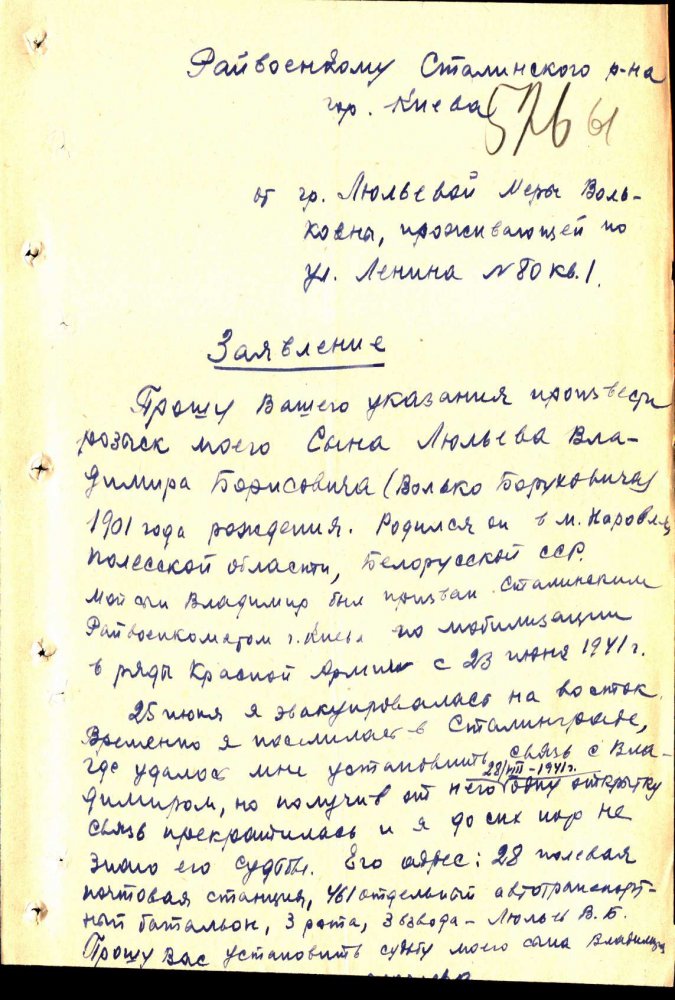 Райвоенкому Сталинского р-на
гор. Киева
от гр. Люльевой Меры Воль-
ковны, проживающей по
ул. Ленина №80 кв.1.
Заявление
Прошу Вашего указания произвести
розыск моего Сына Люльева Вла-
димира Борисовича (Волько Боруховича)
1901 года рождения. Родился он в м. Наровля
Полесской области, Белорусской ССР.
Мой сын Владимир был призван Сталинским
Райвоенкоматом г. Киева по мобилизации
в ряды Красной Армии с 23 июня 1941 г.
25 июня я эвакуировалась на восток.
Временно я поселилась в Сталинграде,
где удалось мне установить связь с Вла-
28/VIII-1941 г.
димиром, но получив от него одну открытку
связь прекратилась и я до сих пор не
знаю его судьбы. Его адрес: 28 полевая
почтовая станция, 461 отдельный автотранспорт-
ный батальон, 3 рота, 3 взвода - Люльев В. Б.
Прошу Вас установить судьбу моего сына Владимира